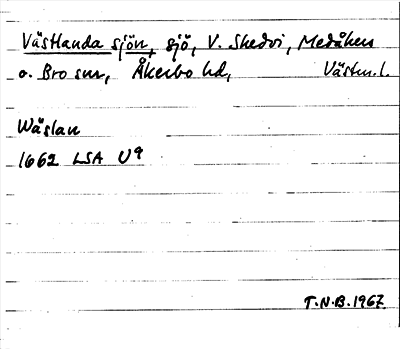 Västlanda sjön, sjö, V. Skedvi, Medåkers
o. Bro snr, Åkerbo hd, Västm.l.
Wäslan
1662 LSA U9
T.N.B. 1967